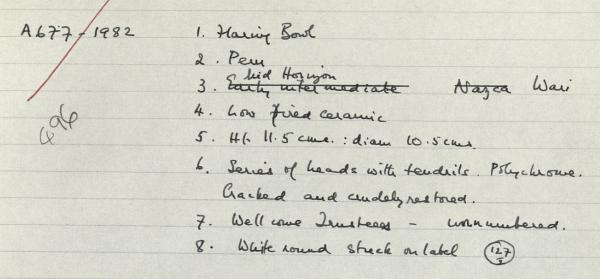 A677-1982 1. Flaring Bowl
2. Peru
Mid Horizon
3. Early intermediate Nazca Wari
4. Low fired ceramic
5. Ht. 11.5 cms. : diam 10.5 cms.
6. Series of heads with tendrils. Polychrome.
Cracked and crudely restored.
7. Wellcome Trustees - unnumbered.
8. White round stuck on label 127
496